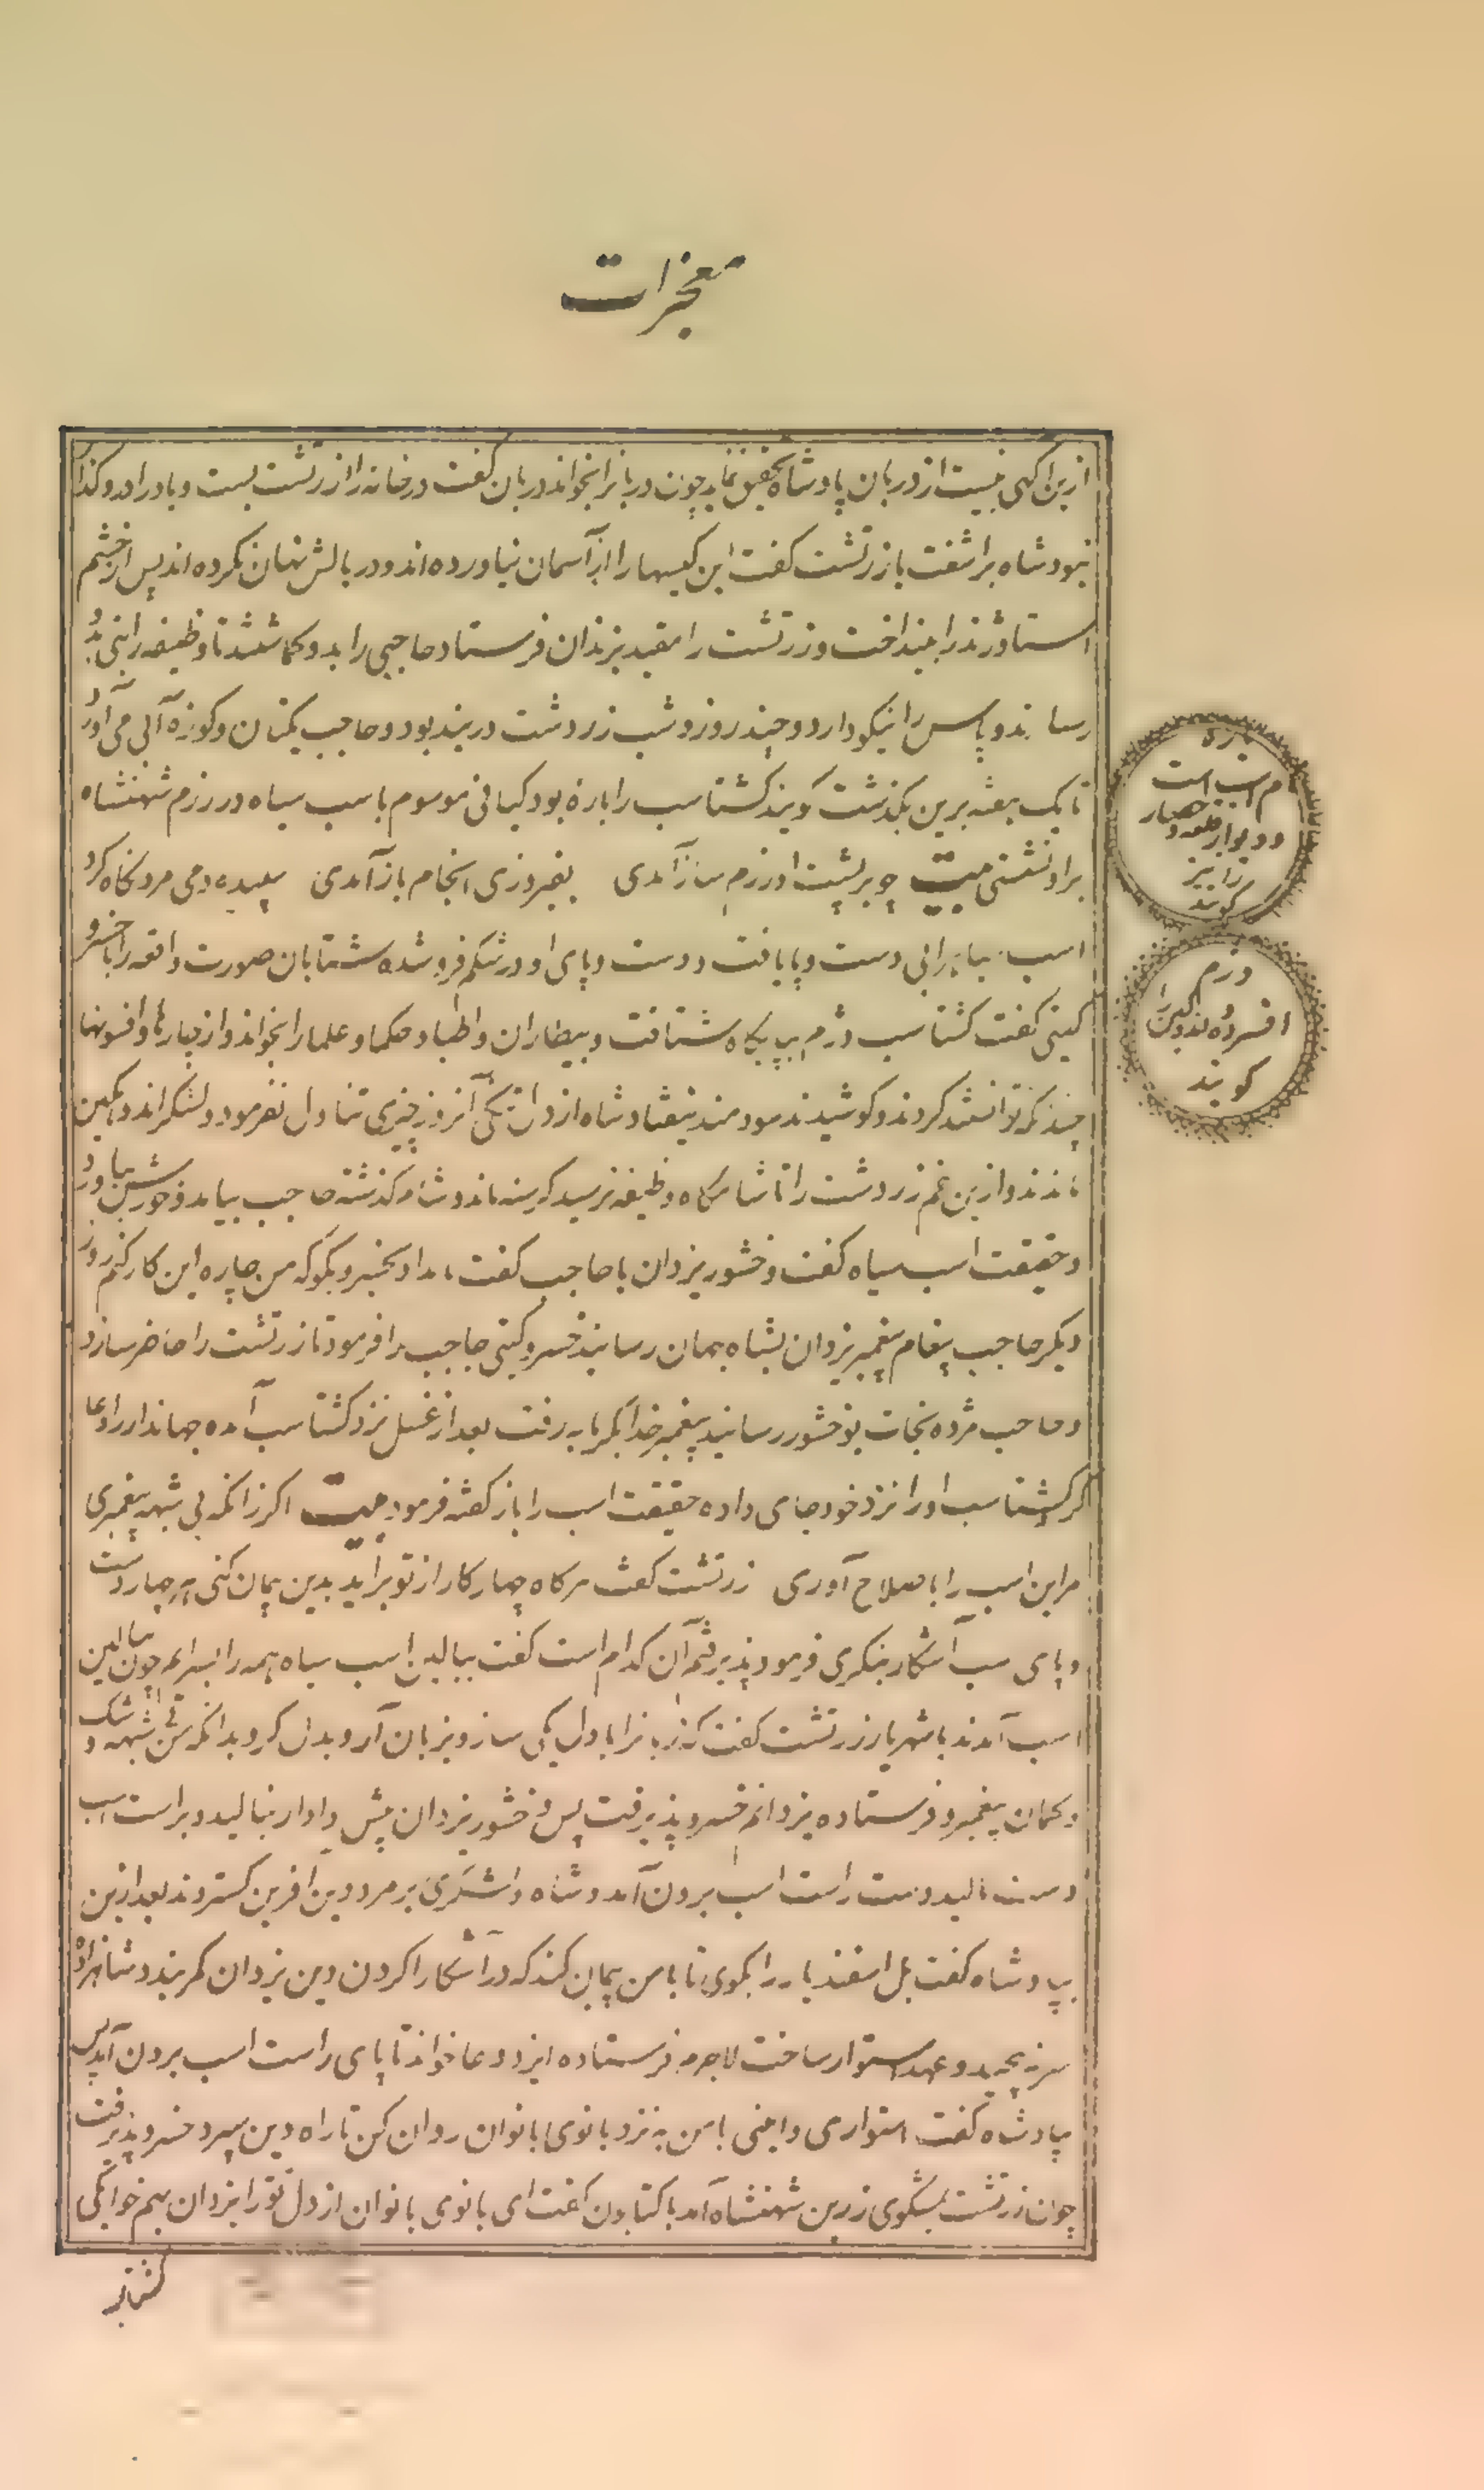 معجزات
ازین اکهی نیست از دربان پادشاه تحقیق نماید چون دربانرا بخواند دربان کفت در خانه را زرتشت بست و باد را در او کذا
نبود شاه براشفت با زرتشت کفت این کیسها را از آسمان نیاورده اند و در بالش نهان نکرده اند پس از خشم
استا و ژند را بینداخت و زرتشت را مقید بزندان فرستاد حاجبی را بدو کماشتند تا وظیفه را بنی بدو
رساند و پاس را نیکو دارد و چند روز و شب زردشت در بند بود و حاجب یکتا نان و کوزه آبی می آورد
تا یک هفته برین بکذشت کویند کشتاسب را بارهٔ بود کیانی موسوم باسب سیاه در رزم شهنشاه
براو نشستی بیت چو بر پشت او رزم ساز آمدی بفیروزی انجام باز آمدی سپیده دمی مرد نکاه کرد
اسب سیاه را بی دست و پا یافت و دست و پای او در شکم فروشده شتابان صورت واقعه را با خسرو
کیتی کفت کشتاسب دژم بپایکاه شتافت و بیطاران و اطبا و حکما و علما را بخواند و از چارها و افسونها
چندانکه توانستند کردند و کوشیدند سودمند نیفتاد شاه از دل تنکی آنروز چیزی تناول نفرمود و لشکر اندوهکین
ماندند و ازین غم زردشت را تا شامکاه وظیفه نرسید کرسنه ماند و شام کذشته حاجب بیامد و خورشش بیاورد
و حقیقت اسب سیاه کفت وخشور یزدان با حاجب کفت بامداد بخسرو بکو که من چاره این کار کنم روز
دیکر حاجب پیغام پیغمبر یزدان بشاه جهان رسانید خسرو کیتی حاجب را فرمود تا زرتشت را حاضر سازد
و حاجب مژده نجات بوخشور رسانید پیغمبر خدا بکرمابه رفت بعد از غسل نزد کشتاسب آمده جهاندار را دعا
کرد کشتاسب او را نزد خود جای داده حقیقت اسب را باز کفته فرمود بیت اکر زانکه بی شبهه پیغمبری
مر این اسب را باصلاح آوری زرتشت کفت هرکاه چهار کار از تو براید بدین پیمان کنی هر چهار دست
و پای اسب آشکار بنکری فرمود پذیرفتم آن کدام است کفت ببالین اسب سیاه همه را بسرایم چون ببالین
اسب آمدند با شهریار زرتشت کفت که زبانرا با دل یکی ساز و بزبان آر و بدل کرو بدانکه من بی شبهه و شک
و کمان پیغمبر و فرستاده یزدانم خسرو پذیرفت پس وخشور یزدان پیش دادار بنالید و بر است اسب
دست مالید دست راست اسب برون آمد و شاه و لشکری بر مرد دین افرین کستردند بعد ازین
بپادشاه کفت یل اسفندیار را بکوی تا با من پیمان کند که در آشکارا کردن دین یزدان کمر بندد شاهزاده
سر نپیچید و عهد استوار ساخت لاجرم فرستاده ایزد دعا خواند تا پای راست اسب برون آمد پس
بپادشاه کفت استواری و امینی با من به نزد بانوی بانوان روان کن تا راه دین سپرد خسرو پذیرفت
چون زرتشت بمشکوی زرین شهنشاه آمد با کتایون کفت ای بانوی بانوان از دل ترا یزدان بهم خوابکی
کشتاسب
باره
نام اسب است
و دیوار قلعه و حصار
را نیز
کویند
دژم
افسرده و اندوهکین را
کویند